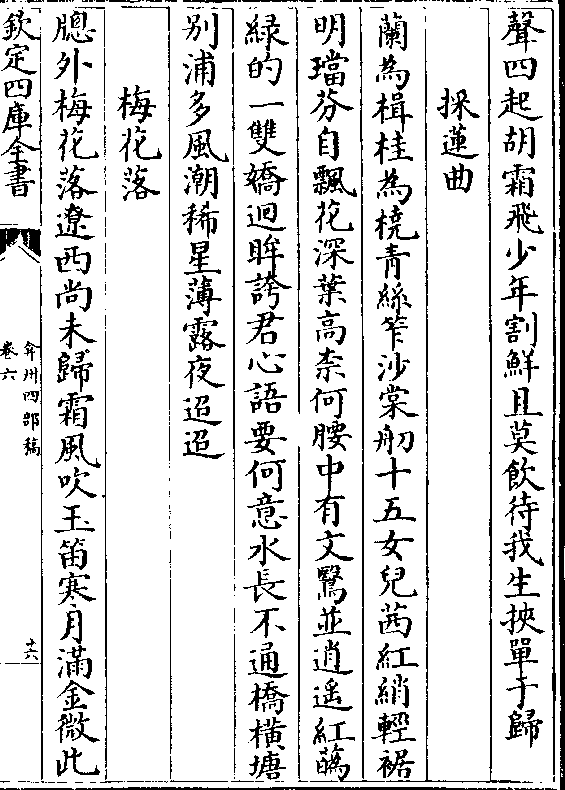 聲四起胡霜飛少年割鮮且莫飲待我生挾單于歸
採蓮曲
蘭為楫桂為橈青絲笮沙棠舠十五女兒茜紅綃輕裾
明璫芬自飄花深葉高柰何腰中有文鴛並逍遥紅蕅
緑的一雙嬌迴眸誇君心語要何意水長不通橋橫塘
别浦多風潮稀星薄露夜迢迢
梅花落
牕外梅花落遼西尚未歸霜風吹玉笛寒月滿金微此
欽定四庫全書
弇州四部稿
卷六
十六